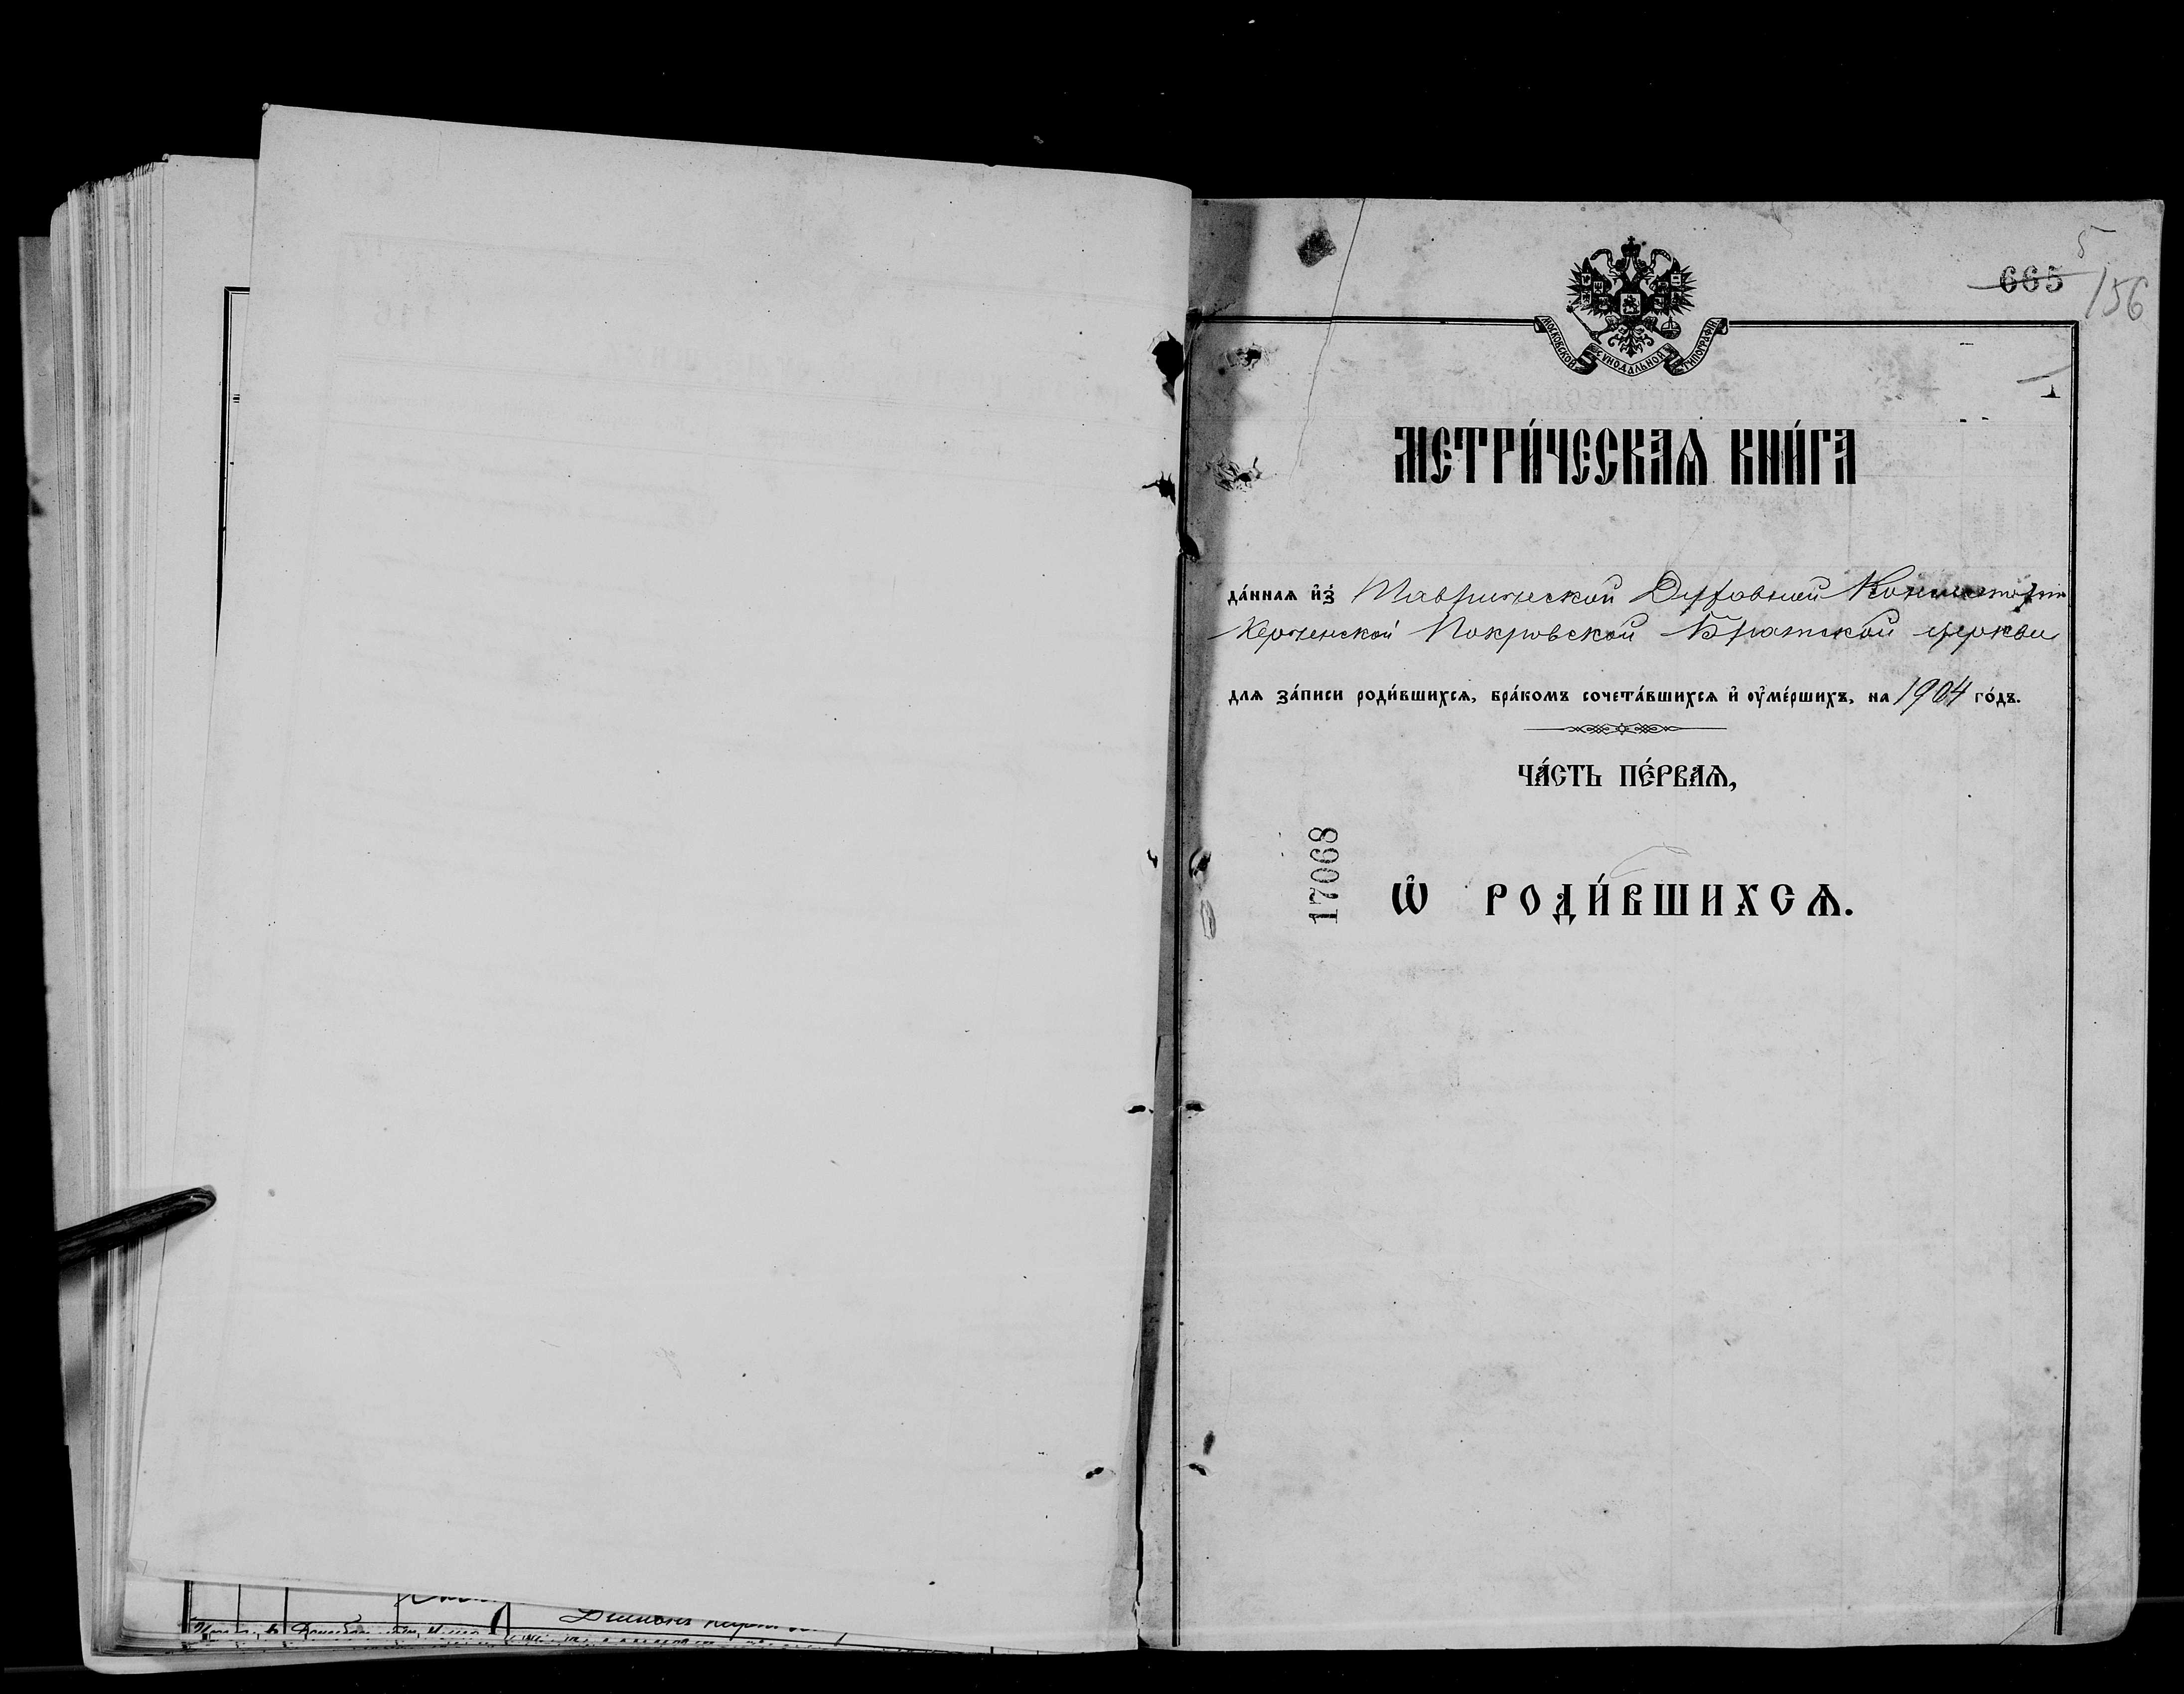 665
5
156
МОСКОВСКОЙ СѴНОДАЛЬНОЙ ТИПОГРАФІИ
МЕТРИ́ЧЕСКАѦ КНИ́ГА
да́ннаѧ и҆з̾ Таврической Духовной Консисторіи
Керченской Покровской Братской церкви
длѧ за́писи роди́вшихсѧ, бра́комъ сочета́вшихсѧ и҆ оу҆ме́ршихъ, на 1904 го́дъ.
ЧА́СТЬ ПЕ́РВАѦ,
17068
Ѡ҆ РОДИ́ВШИХСѦ.